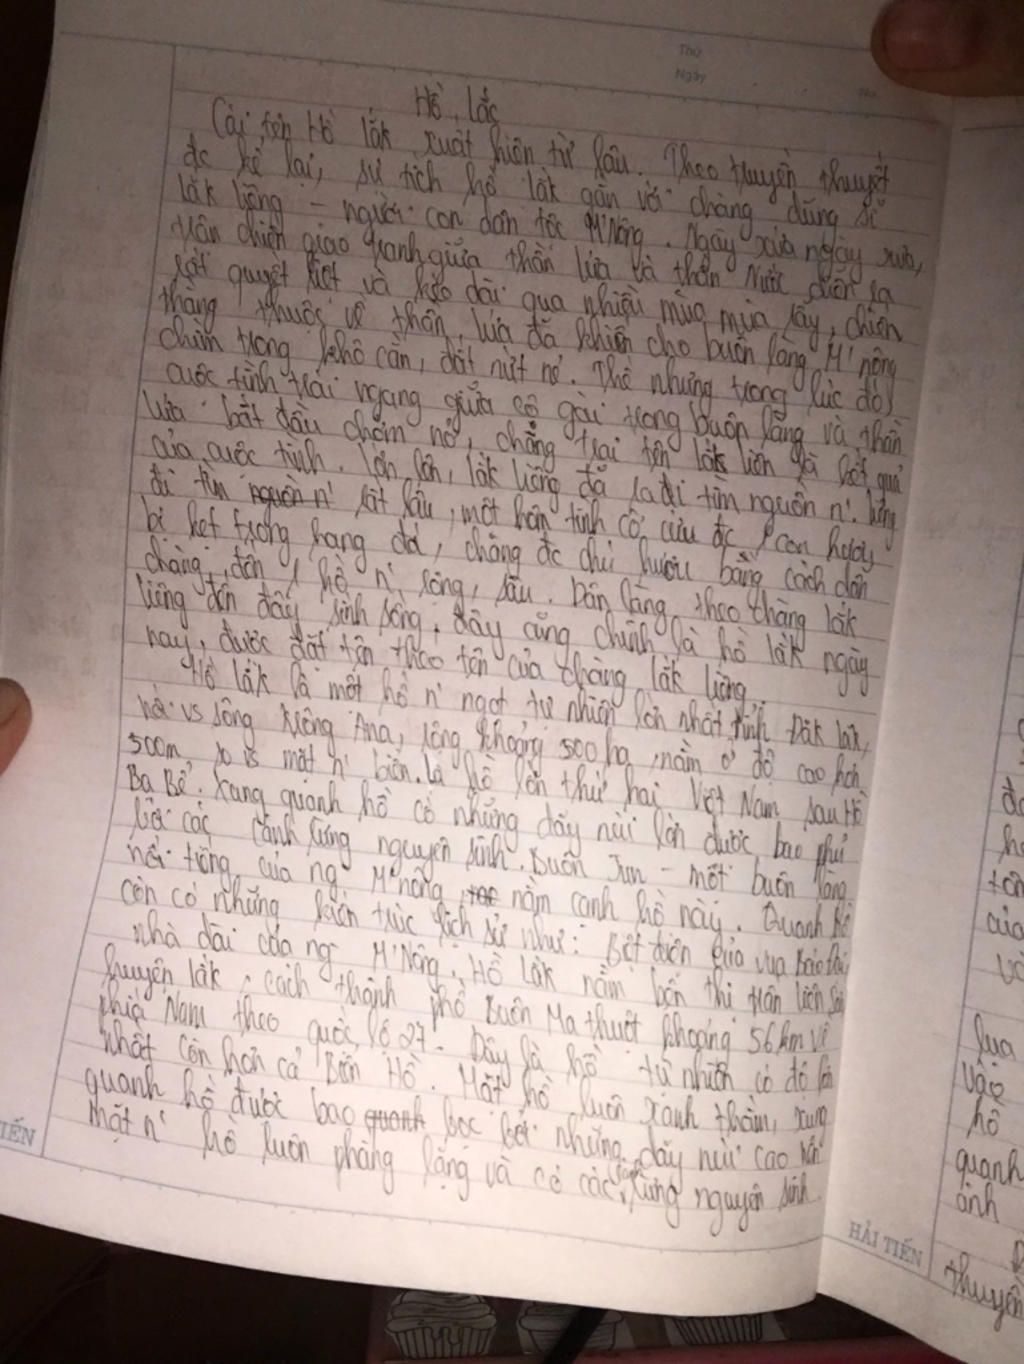 Thứ
Ngày
No.
Hồ Lắc
Cái tên Hồ lắk xuất hiện từ lâu. Theo truyền thuyết
đc kể lại, sự tích hồ lắk gắn với chàng dũng sĩ
lắk liêng – người con dân tộc M'Nông. Ngày xửa ngày xưa,
trận chiến giao tranh giữa thần lửa và thần Nước diễn ra
rất quyết liệt và kéo dài qua nhiều mùa mùa rẫy, chiến
thắng thuộc về thần lửa đã khiến cho buôn làng M'nông
chìm trong khô cằn, đất nứt nẻ. Thế nhưng trong lúc đó,
cuộc tình trái ngang giữa cô gái trong buôn làng và thần
lửa bắt đầu chớm nở, chàng trai tên lắk liên là kết quả
của cuộc tình. lớn lên, lắk liêng đã ra đi tìm nguồn n'.
đi tìm nguồn n' rất lâu, một hôm tình cờ cứu đc 1 con hươu
bị kẹt trong hang đá, chàng đc chú hươu bằng cách dẫn
chàng đến 1 hồ n' rộng, sâu. Dân làng theo chàng lắk
liêng đến đây sinh sống. đây cũng chính là hồ lắk ngày
nay, được đặt tên theo tên của chàng lắk liêng.
Hồ lắk là một hồ n' ngọt tự nhiên lớn nhất tỉnh Đắk lắk,
nối vs sông Krông Ana, rộng khoảng 500 ha, nằm ở độ cao hơn
500m so vs mặt n' biển. là hồ lớn thứ hai Việt Nam sau Hồ
Ba Bể. Xung quanh hồ có những dãy núi lớn được bao phủ
bởi các cánh rừng nguyên sinh. Buôn Jun – một buôn làng
nổi tiếng của ng M'nông nằm cạnh hồ này. Quanh hồ
còn có những kiến trúc lịch sử như: Biệt điện của vua Bảo Đại,
nhà dài của ng M'Nông. Hồ lắk nằm bên thị trấn liên Sơn
huyện lắk, cách thành phố Buôn Ma thuột khoảng 56km về
phía Nam theo quốc lộ 27. Đây là hồ tự nhiên có độ lớn
nhất còn hơn cả Biển Hồ. Mặt hồ luôn xanh thẳm, xung
quanh hồ được bao quanh bọc bởi những dãy núi cao nên
mặt n' hồ luôn phẳng lặng và có các cánh rừng nguyên sinh.
IẾN
HẢI TIẾN
của
lụa
vào
hồ
quanh
ảnh
thuyền